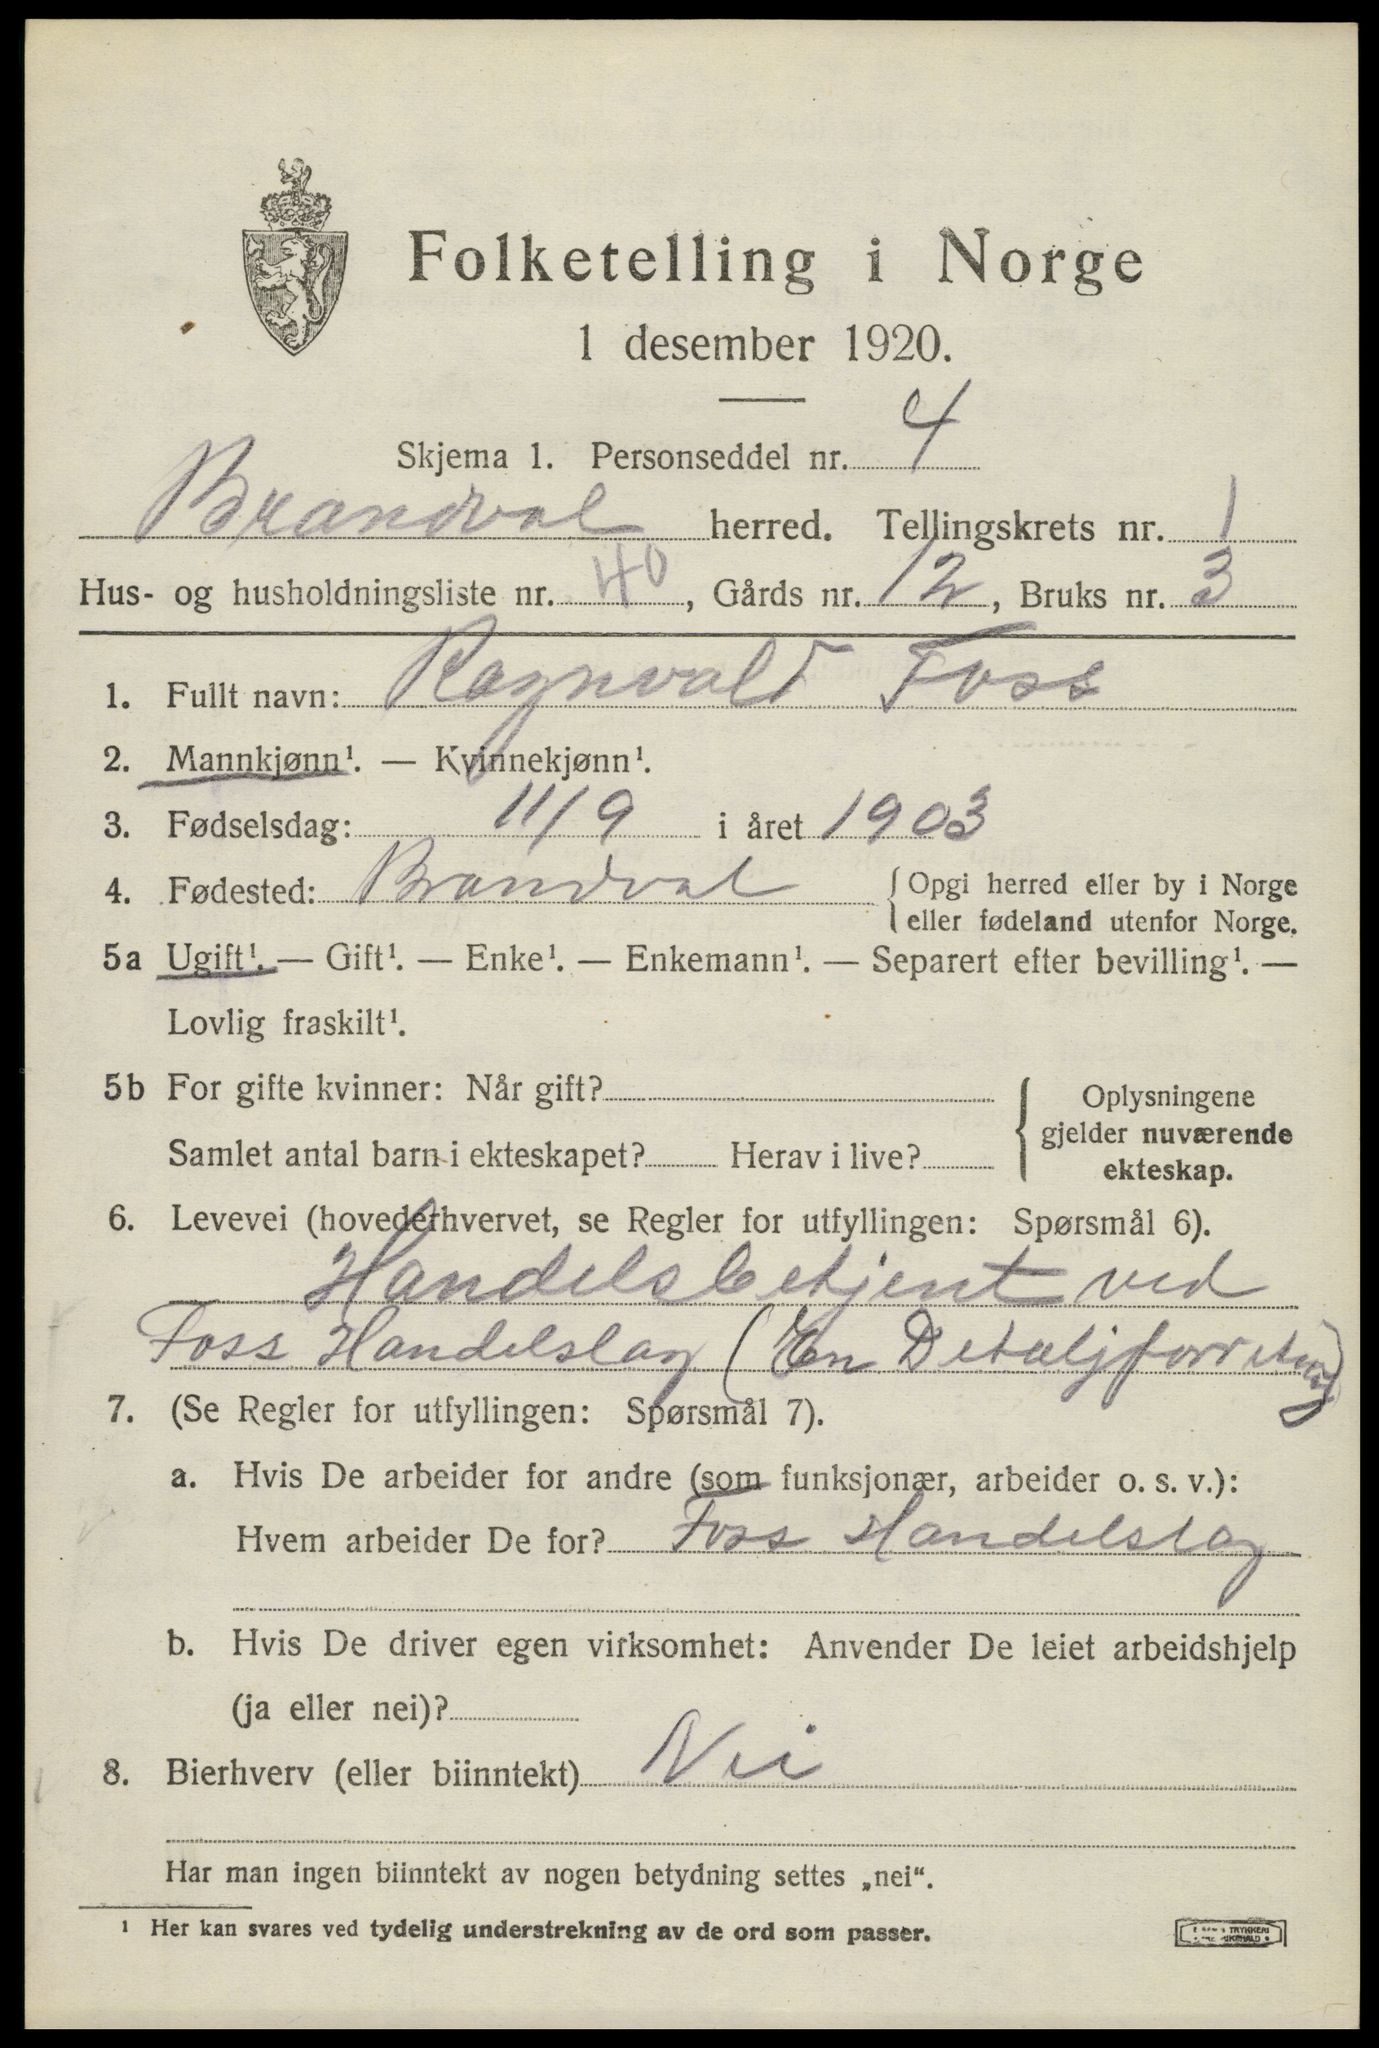 Folketelling i Norge
1 desember 1920.
Skjema 1. Personseddel nr. 4
Brandval herred. Tellingskrets nr. 1
Hus- og husholdningsliste nr. 40, Gårds nr. 12, Bruks nr. 3
1. Fullt navn: Ragnvald Foss
2. Mannkjønn¹. — Kvinnekjønn¹.
3. Fødselsdag: 11/9 i året 1903
4. Fødested: Brandval {Opgi herred eller by i Norge
eller fødeland utenfor Norge.
5a Ugift¹. — Gift¹. — Enke¹. — Enkemann¹. — Separert efter bevilling¹. —
Lovlig fraskilt¹.
5b For gifte kvinner: Når gift?
Samlet antal barn i ekteskapet? Herav i live?
{Oplysningene
gjelder nuværende
ekteskap.
6. Levevei (hovederhvervet, se Regler for utfyllingen: Spørsmål 6).
Handelsbetjent ved
Foss Handelslag (En Detaljforretning)
7. (Se Regler for utfyllingen: Spørsmål 7).
a. Hvis De arbeider for andre (som funksjonær, arbeider o. s. v.):
Hvem arbeider De for? Foss Handelslag
b. Hvis De driver egen virksomhet: Anvender De leiet arbeidshjelp
(ja eller nei)?
8. Bierhverv (eller biinntekt) Nei
Har man ingen biinntekt av nogen betydning settes „nei“.
¹ Her kan svares ved tydelig understrekning av de ord som passer.